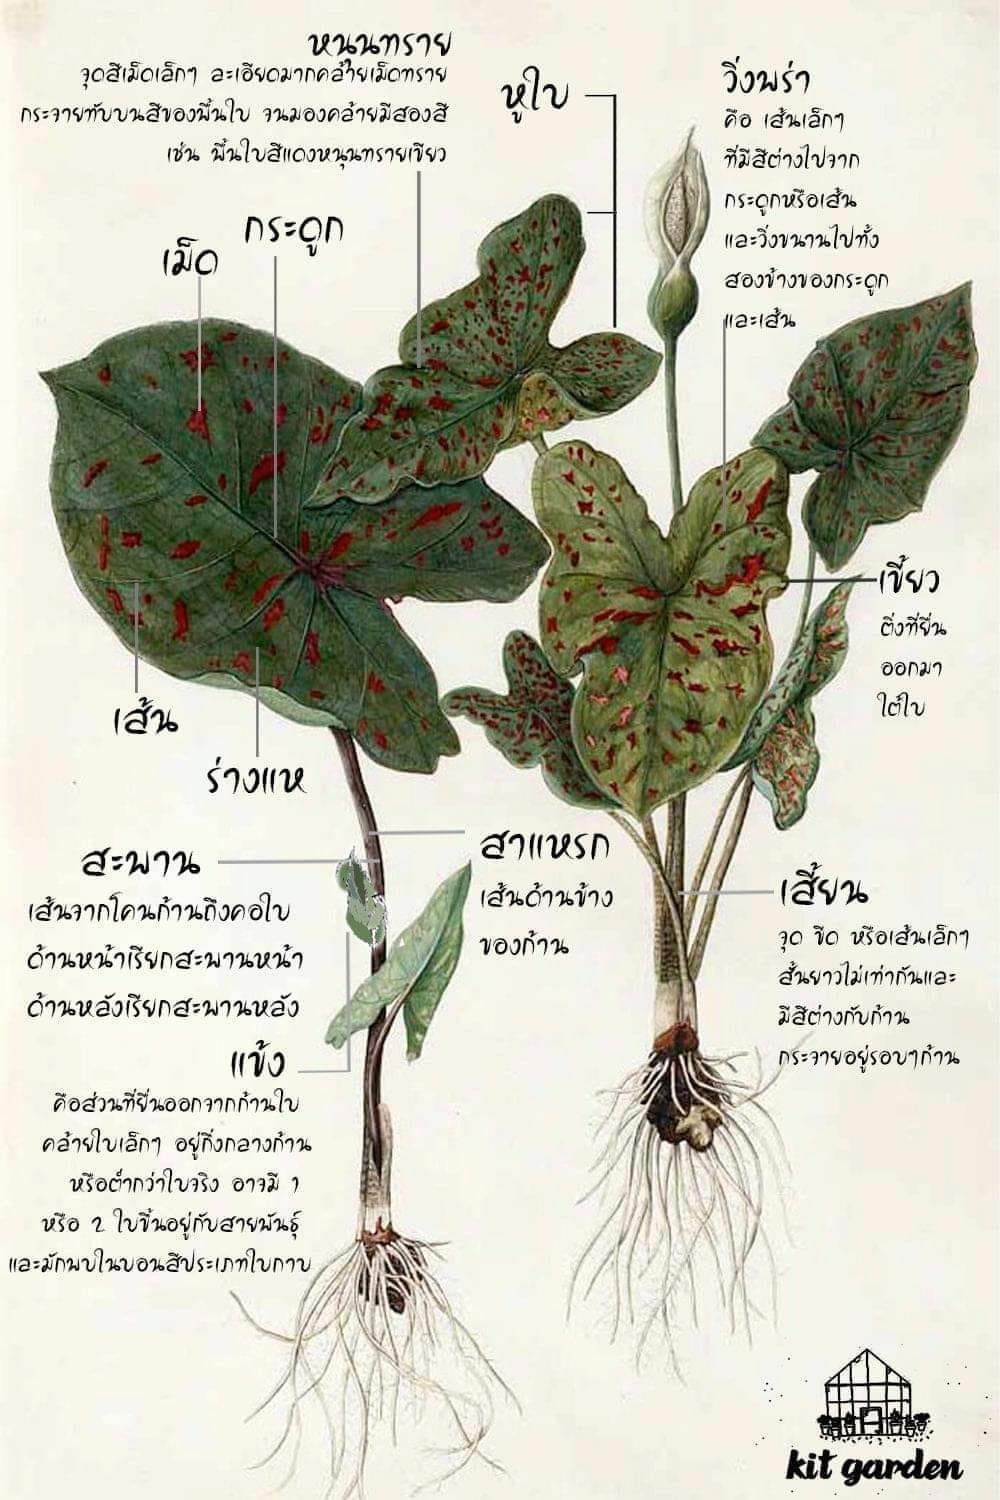 หนุนทราย
จุดสีเม็ดเล็กๆ ละเอียดมากคล้ายเม็ดทราย
กระจายทับบนสีของพื้นใบ จนมองคล้ายมีสองสี
เช่น พื้นใบสีแดงหนุนทรายเขียว
หูใบ
วิ่งพร่า
คือ เส้นเล็กๆ
ที่มีสีต่างไปจาก
กระดูกหรือเส้น
และวิ่งขนานไปทั้ง
สองข้างของกระดูก
และเส้น
กระดูก
เม็ด
เขี้ยว
ติ่งที่ยื่น
ออกมา
ใต้ใบ
เส้น
ร่างแห
สะพาน
เส้นจากโคนก้านถึงคอใบ
ด้านหน้าเรียกสะพานหน้า
ด้านหลังเรียกสะพานหลัง
สาแหรก
เส้นด้านข้าง
ของก้าน
เสี้ยน
จุด ขีด หรือเส้นเล็กๆ
สั้นยาวไม่เท่ากันและ
มีสีต่างกับก้าน
กระจายอยู่รอบๆก้าน
แข้ง
คือส่วนที่ยื่นออกจากก้านใบ
คล้ายใบเล็กๆ อยู่กึ่งกลางก้าน
หรือต่ำกว่าใบจริง อาจมี 1
หรือ 2 ใบขึ้นอยู่กับสายพันธุ์
และมักพบในบอนสีประเภทใบกาบ
kit garden